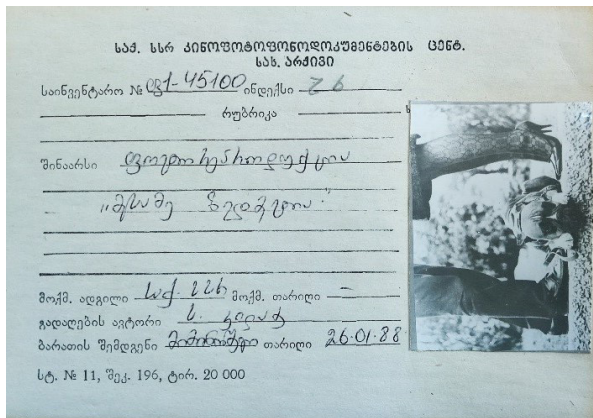 საქ. სსრ კინოფოტოფონოდოკუმენტების ცენტ.
სახ. არქივი
საინვენტარო № 1-45100 ინდექსი 26
რუბრიკა
შინაარსი ფოტორეპროდუქცია
„მესამე
მოქმ. ადგილი საქ. სსრ მოქმ. თარიღი —
გადაღების ავტორი ს.
ბარათის შემდგენი თარიღი 26.01.88
სტ. № 11, შეკ. 196, ტირ. 20 000